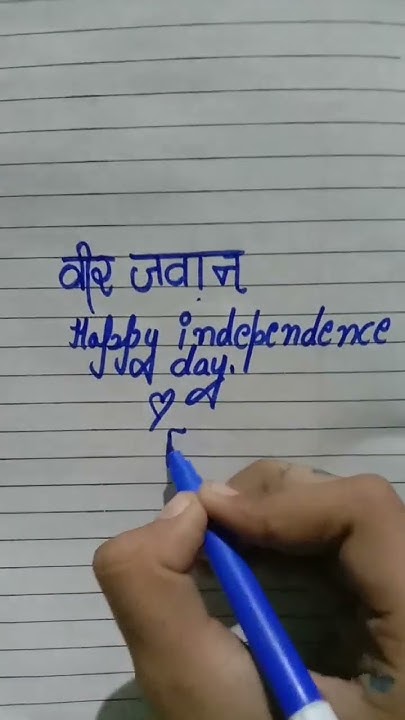 वीर जवान
Happy independence
day.